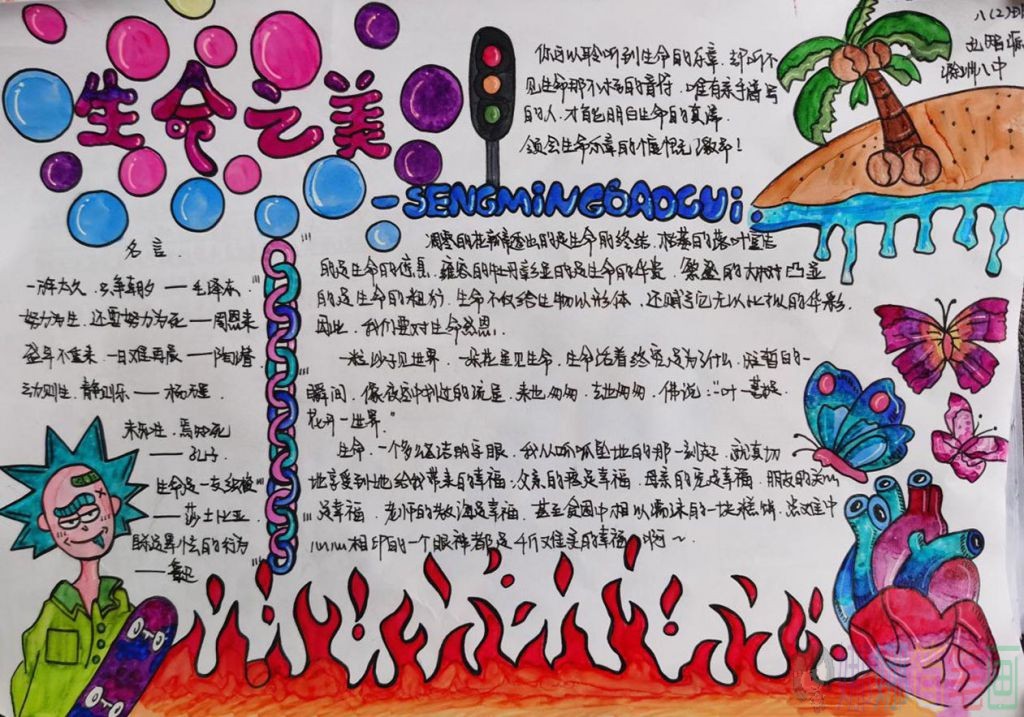 生命之美
八(2)班
滁州八中
你可以聆听到生命的乐章,却听不
见生命那不朽的音符,唯有亲手谱写
的人,才能明白生命的真谛
领会生命乐章的
-SENGMiNGGAOGUi.
名言.
一万年太久,只争朝夕 — 毛泽东
努力为生,还要努力为死 — 周恩来
盛年不重来,一日难再晨 — 陶渊明
动则生,静则乐 —
未知生,焉知死
— 孔子
生命是一支
— 莎士比亚
— 鲁迅
凋零的花瓣写出的是生命的终结,枯落的落叶
的是生命的信息,雍容的牡丹彰显的是生命的华贵,
的是生命的粗犷,生命不仅给生物以形体,还赋予它无以比拟的华彩,
因此,我们要对生命感恩.
一粒沙子见世界,一朵花里见生命,生命活着终究是为什么,短暂的一
瞬间,像夜空中划过的流星,来也匆匆,去也匆匆,佛说:"一叶一菩提,
花开一世界."
生命,一个多么活的字眼,我从呱呱坠地的那一刻起,就真切
地享受到她给我带来的幸福:父亲的疼是幸福,母亲的爱是幸福,朋友的关心
是幸福,老师的教诲是幸福,甚至食园中相似
心心相印的一个眼神都是